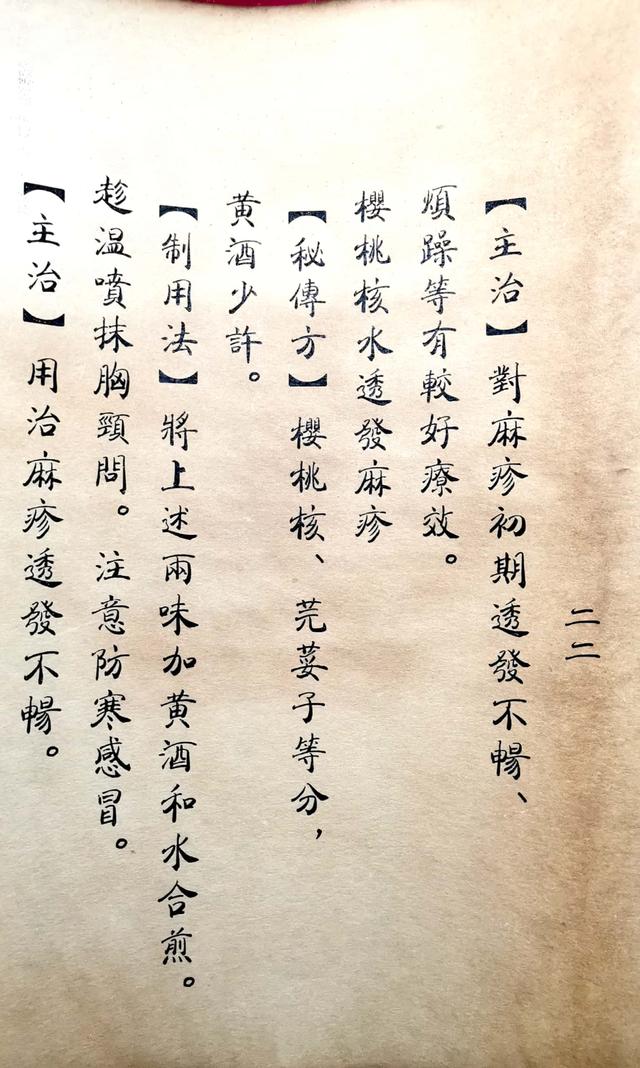 二二
【主治】對麻疹初期透發不暢、
煩躁等有較好療效。
櫻桃核水透發麻疹
【秘傳方】櫻桃核、芫荽子等分，
黄酒少許。
【制用法】將上述兩味加黄酒和水合煎。
趁温噴抹胸頸問。注意防寒感冒。
【主治】用治麻疹透發不暢。